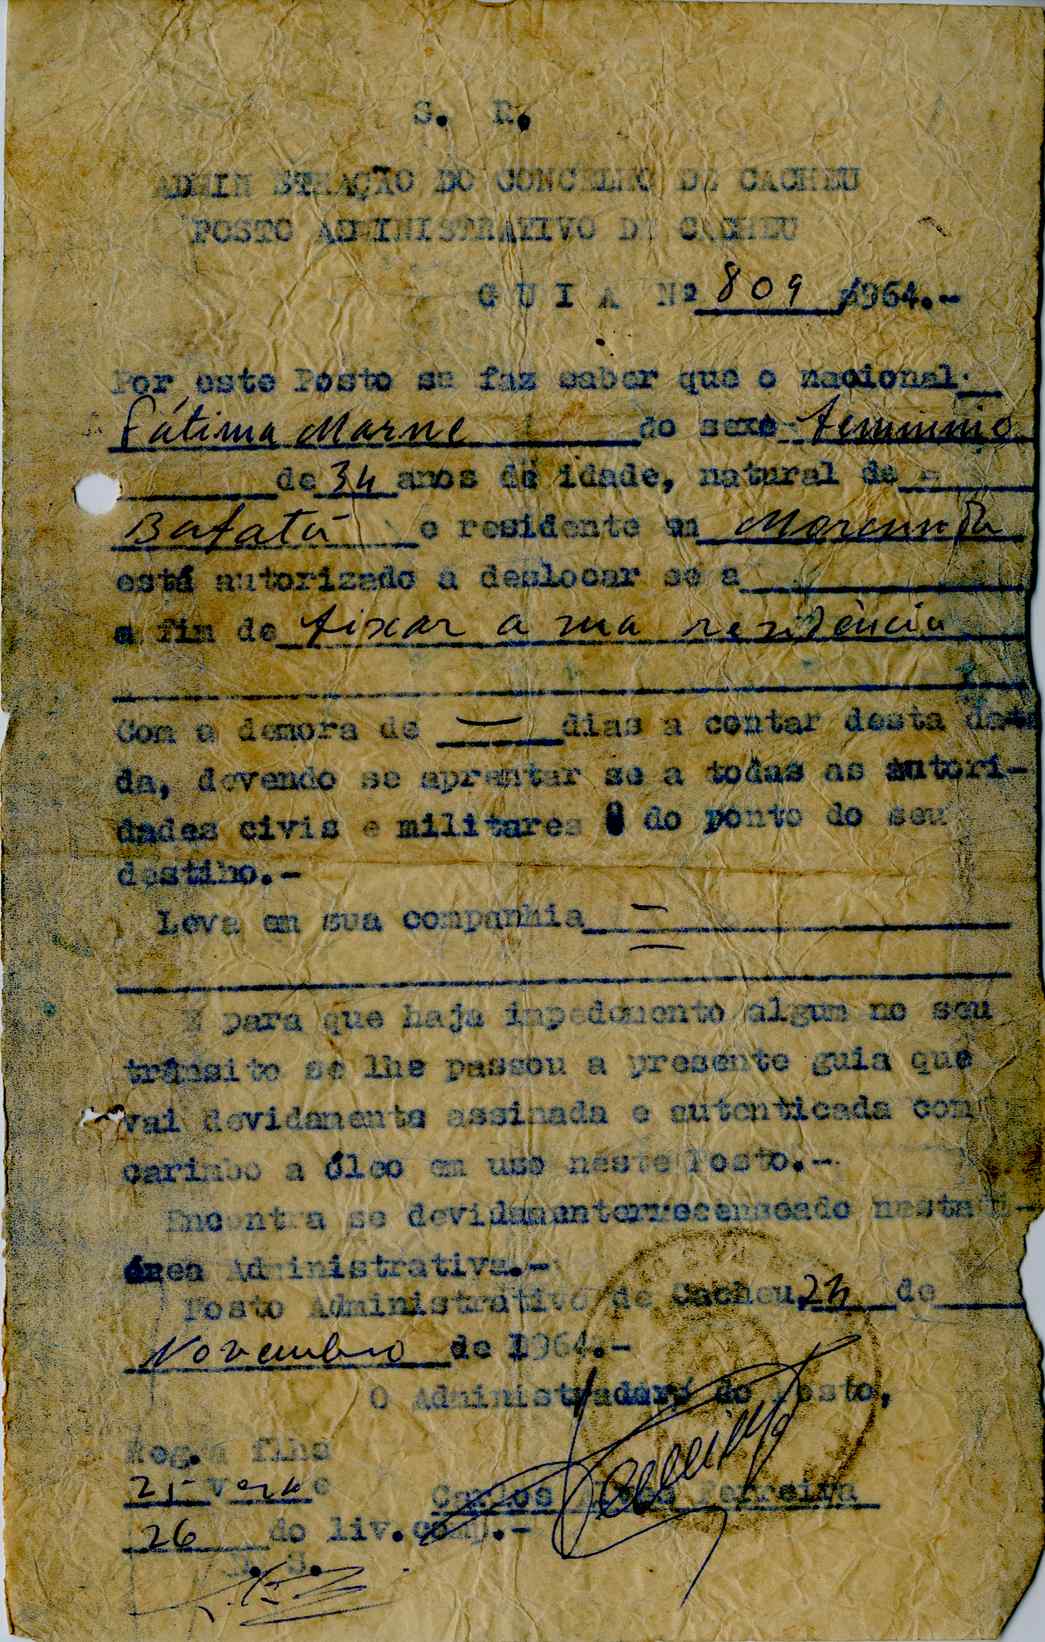 S. R.
ADMIN STRAÇÃO DO CONCELHO DE CACHEU
POSTO ADMINISTRATIVO DE CACHEU
G U I A Nº 809 /964.-
Por este Posto se faz saber que o nacional
Fátima Marne do sexo feminino
de 34 anos de idade, natural de
Bafatá e residente em
está autorizado a deslocar se a
a fim de fixar a sua residência
Com a demora de = dias a contar desta data
da, devendo se aprentar se a todas as autori-
dades civis e militares do ponto do seu
destiho.-
Leva em sua companhia =
E para que haja impedemento algum no seu
trânsito se lhe passou a presente guia que
vai devidamente assinada e autenticada com
carimbo a óleo em uso neste Posto.-
Encontra se devidamente recenseado nesta
área Administrativa.-
Posto Administrativo de Cacheu, 23 de
Novembro de 1964.-
O Administrador do Posto,
Reg. a flhs
25 verso e
Carlos Alves Ferreira
26 do liv. comp.-